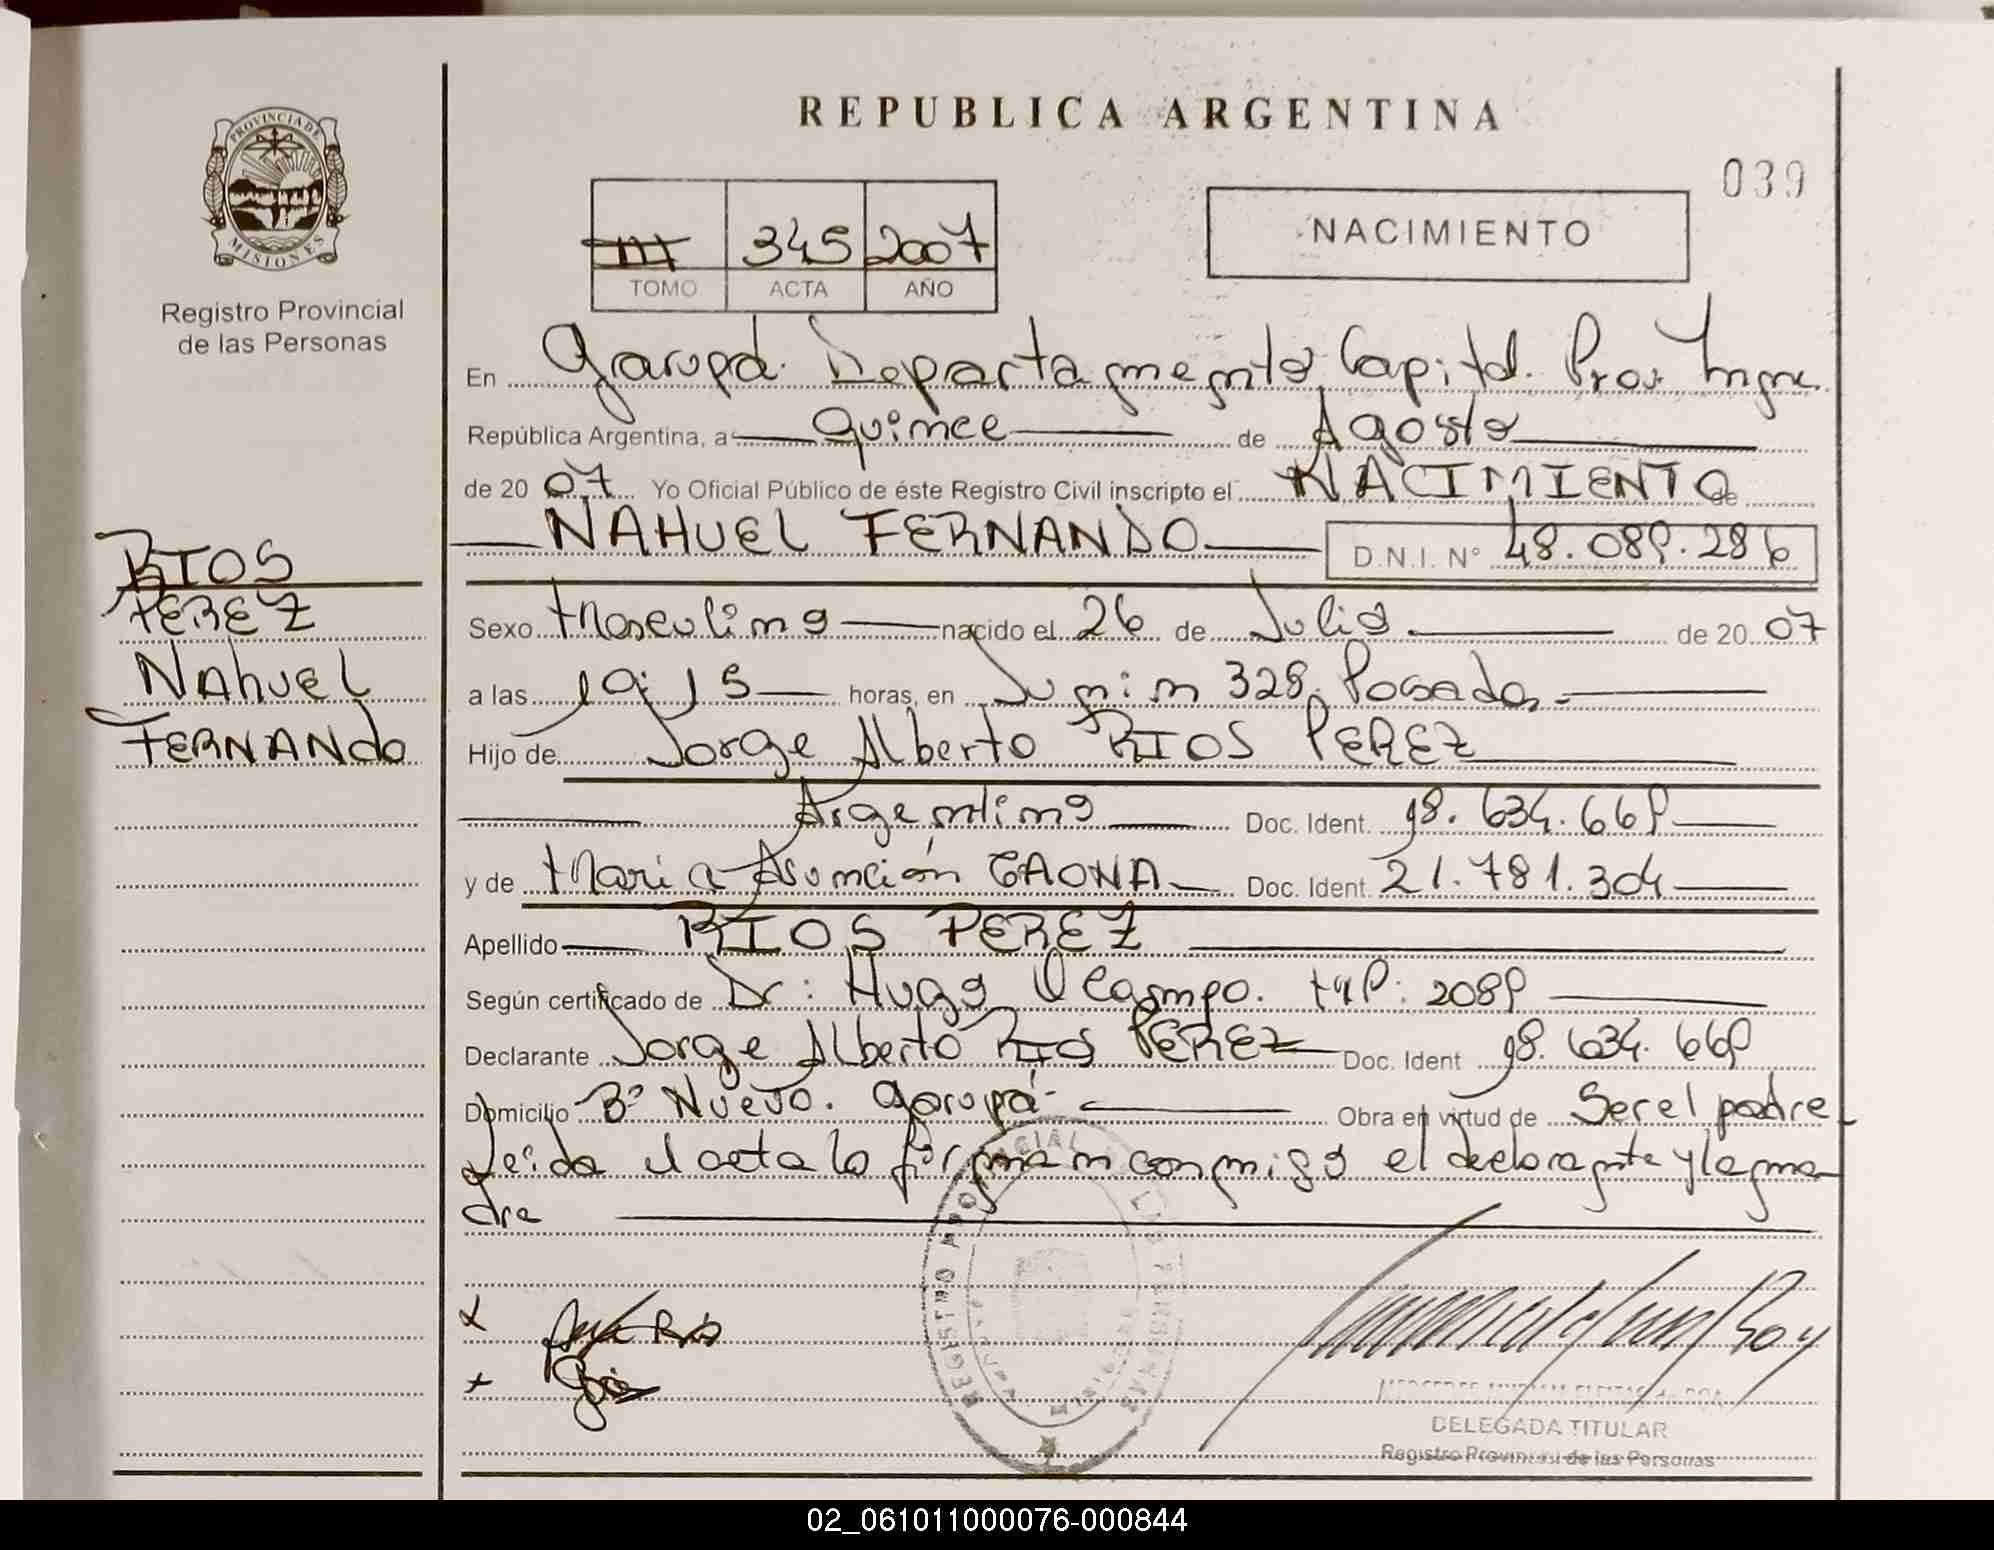 REPUBLICA ARGENTINA
039
PROVINCIA DE MISIONES
Registro Provincial
de las Personas
III 345 2007
TOMO ACTA AÑO
NACIMIENTO
En Garupá. Departamento Capital. Prov. Mnes.
República Argentina, a quince de Agosto
de 20 07 Yo Oficial Público de éste Registro Civil inscripto el NACIMIENTO de
NAHUEL FERNANDO D.N.I. N° 48.089.286
RIOS
PEREZ
Nahuel
FERNANdo
Sexo Masculino nacido el 26 de Julio de 20 07
a las 19:15 horas, en Junin 328. Posadas.
Hijo de Jorge Alberto RIOS PEREZ
Argentino Doc. Ident. 18.634.669
y de Maria Asunción GAONA Doc. Ident. 21.781.304
Apellido RIOS PEREZ
Según certificado de Dr: Hugo Ocampo. MP: 2089
Declarante Jorge Alberto Rios PEREZ Doc. Ident 18.634.669
Domicilio B° Nuevo. Garupá Obra en virtud de Ser el padre
Leida el acta la firman conmigo el declarante y la ma-
dre
x
x
DELEGADA TITULAR
Registro Provincial de las Personas
02_061011000076-000844